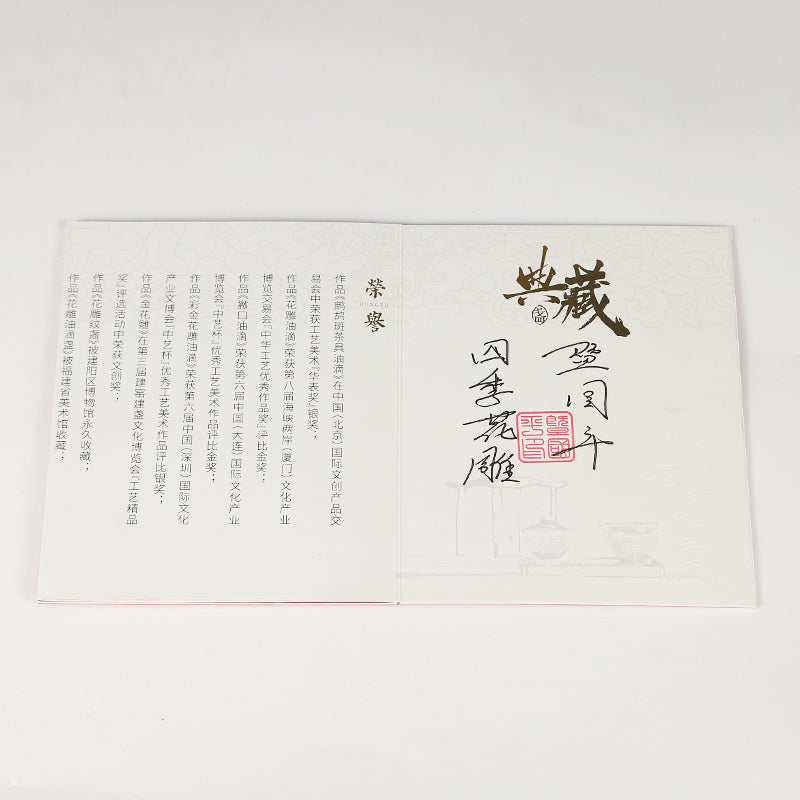 典藏
暨国平
四季花雕
榮譽
RONGYU
作品《鹧鸪斑茶具油滴》在中国（北京）国际文创产品交
易会中荣获工艺美术『华表奖』银奖；
作品《花雕油滴》荣获第八届海峡两岸（厦门）文化产业
博览交易会『中华工艺优秀作品奖』评比金奖；
作品《撇口油滴》荣获第六届中国（大连）国际文化产业
博览会『中艺杯』优秀工艺美术作品评比金奖；
作品《彩金花雕油滴》荣获第六届中国（深圳）国际文化
产业文博会『中艺杯』优秀工艺美术作品评比银奖；
作品《金花雕》在第三届建窑建盏文化博览会『工艺精品
奖』评选活动中荣获文创奖；
作品《花雕纹盏》被建阳区博物馆永久收藏；
作品《花雕油滴盏》被福建省美术馆收藏；